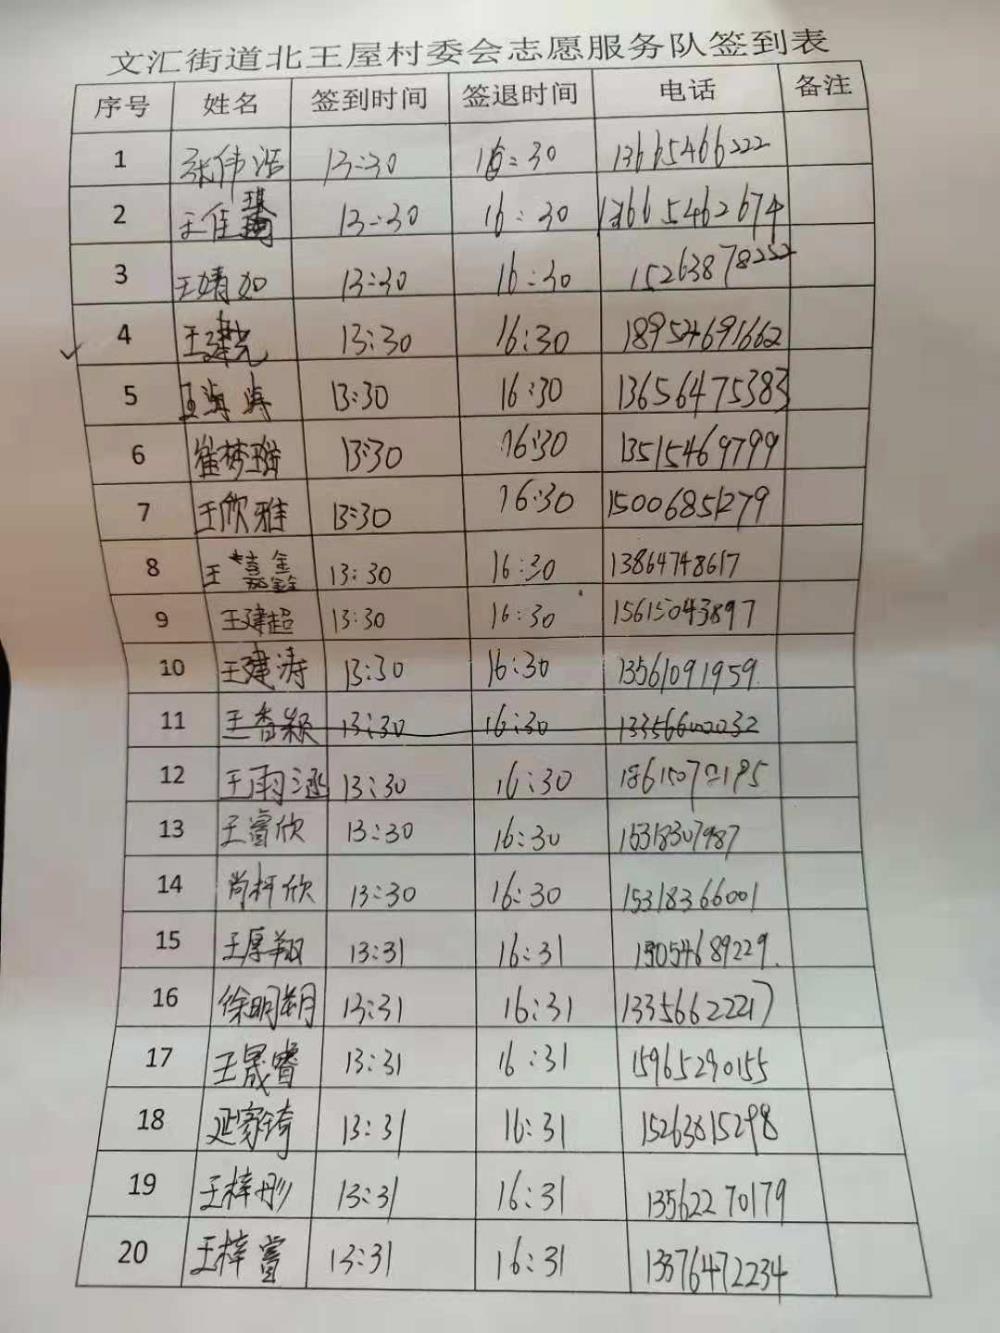 文汇街道北王屋村委会志愿服务队签到表
序号 姓名 签到时间 签退时间 电话 备注
1 张伟浩 13:30 16:30 13665466222
2 王佳琪 13:30 16:30 13665462674
3 王婧如 13:30 16:30 15263878252
4 王建光 13:30 16:30 18954691662
5 王海涛 13:30 16:30 13656475383
6 崔梦瑶 13:30 16:30 13515469799
7 王欣雅 13:30 16:30 15006851279
8 王嘉鑫 13:30 16:30 13864748617
9 王建超 13:30 16:30 15615043897
10 王建涛 13:30 16:30 13561091959
11 王香颖 13:30 16:30 13356600032
12 王雨涵 13:30 16:30
13 王睿欣 13:30 16:30 15318307987
14 尚柯欣 13:30 16:30 15318366001
15 王厚翔 13:31 16:31 15054689229
16 徐明玥 13:31 16:31 13356622217
17 王晟睿 13:31 16:31 15965290155
18 延家锜 13:31 16:31 15263815298
19 王梓彤 13:31 16:31 13562270179
20 王梓萱 13:31 16:31 13376472234